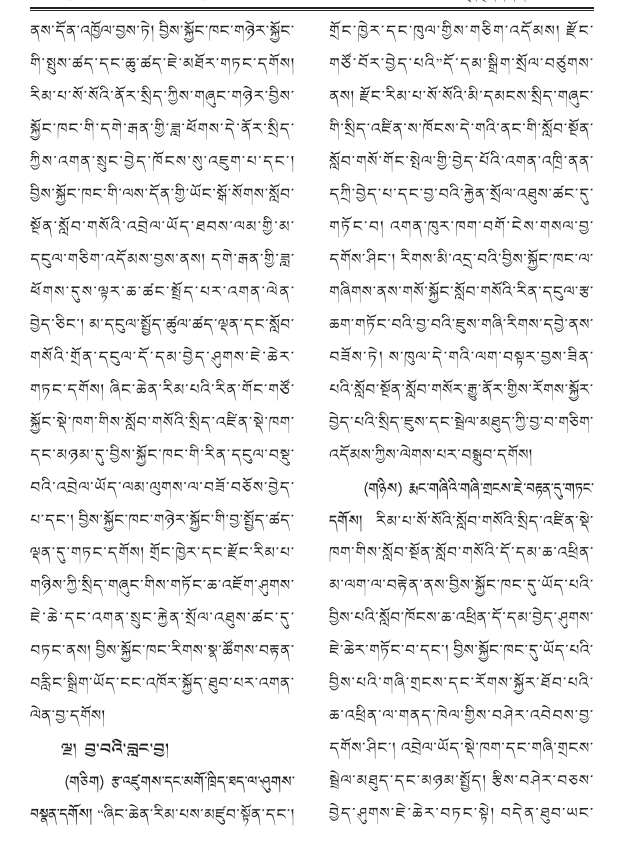 ནས་དོན་འཁྱོལ་བྱས་ཏེ། བྱིས་སྐྱོང་ཁང་གཉེར་སྐྱོང་
གི་སྤུས་ཚད་དང་ཆུ་ཚད་ཇེ་མཐོར་གཏང་དགོས།
རིམ་པ་སོ་སོའི་ནོར་སྲིད་ཀྱིས་གཞུང་གཉེར་བྱིས་
སྐྱོང་ཁང་གི་དགེ་རྒན་གྱི་ཟླ་ཕོགས་དེ་ནོར་སྲིད་
ཀྱིས་འགན་སྲུང་བྱེད་ཁོངས་སུ་འཇུག་པ་དང་།
བྱིས་སྐྱོང་ཁང་གི་ལས་དོན་གྱི་ཡོང་སྒོ་སོགས་སློབ་
སྔོན་སློབ་གསོའི་འབྲེལ་ཡོད་ཐབས་ལམ་གྱི་མ་
དངུལ་གཅིག་འདོམས་བྱས་ནས། དགེ་རྒན་གྱི་ཟླ་
ཕོགས་དུས་ལྟར་ཆ་ཚང་སྤྲོད་པར་འགན་ལེན་
བྱེད་ཅིང་། མ་དངུལ་སྤྱོད་ཚུལ་ཚད་ལྡན་དང་སློབ་
གསོའི་གྲོན་དངུལ་དོ་དམ་བྱེད་ཤུགས་ཇེ་ཆེར་
གཏང་དགོས། ཞིང་ཆེན་རིམ་པའི་རིན་གོང་གཙོ་
སྐྱོང་སྡེ་ཁག་གིས་སློབ་གསོའི་སྲིད་འཛིན་སྡེ་ཁག་
དང་མཉམ་དུ་བྱིས་སྐྱོང་ཁང་གི་རིན་དངུལ་བསྡུ་
བའི་འབྲེལ་ཡོད་ལམ་ལུགས་ལ་བཟོ་བཅོས་བྱེད་
པ་དང་། བྱིས་སྐྱོང་ཁང་གཉེར་སྐྱོང་གི་བྱ་སྤྱོད་ཚད་
ལྡན་དུ་གཏང་དགོས། གྲོང་ཁྱེར་དང་རྫོང་རིམ་པ་
གཉིས་ཀྱི་སྲིད་གཞུང་གིས་གཏོང་ཆ་འཇོག་ཤུགས་
ཇེ་ཆེ་དང་འགན་སྲུང་རྐྱེན་སྲོལ་འཐུས་ཚང་དུ་
བཏང་ནས། བྱིས་སྐྱོང་ཁང་རིགས་སྣ་ཚོགས་བརྟན་
བརླིང་སྒྲིག་ཡོད་ངང་འཁོར་སྐྱོད་ཐུབ་པར་འགན་
ལེན་བྱ་དགོས།
ལྔ། བྱ་བའི་བླང་བྱ།
(གཅིག) རྩ་འཛུགས་དང་མགོ་ཁྲིད་ཐད་ལ་ཤུགས་
བསྣན་དགོས། “ཞིང་ཆེན་རིམ་པས་མཛུབ་སྟོན་དང་།
གྲོང་ཁྱེར་དང་ཁུལ་གྱིས་གཅིག་འདོམས། རྫོང་
གཙོ་བོར་བྱེད་པའི”དོ་དམ་སྒྲིག་སྲོལ་བཙུགས་
ནས། རྫོང་རིམ་པ་སོ་སོའི་མི་དམངས་སྲིད་གཞུང་
གི་སྲིད་འཛིན་ས་ཁོངས་དེ་གའི་ནང་གི་སློབ་སྔོན་
སློབ་གསོ་གོང་སྤེལ་གྱི་བྱེད་པོའི་འགན་འཁྲི་ནན་
དཀྲི་བྱེད་པ་དང་བྱ་བའི་རྐྱེན་སྲོལ་འཐུས་ཚང་དུ་
གཏོང་བ། འགན་ཁུར་ཁག་བགོ་ངེས་གསལ་བྱ་
དགོས་ཤིང་། རིགས་མི་འདྲ་བའི་བྱིས་སྐྱོང་ཁང་ལ་
གཞིགས་ནས་གསོ་སྐྱོང་སློབ་གསོའི་རིན་དངུལ་རྩ་
ཆག་གཏོང་བའི་བྱ་བའི་ཇུས་གཞི་རིགས་དབྱེ་ནས་
བཟོས་ཏེ། ས་ཁུལ་དེ་གའི་ལག་བསྟར་བྱས་ཟིན་
པའི་སློབ་སྔོན་སློབ་གསོར་རྒྱུ་ནོར་གྱིས་རོགས་སྐྱོར་
བྱེད་པའི་སྲིད་ཇུས་དང་སྦྲེལ་མཐུད་ཀྱི་བྱ་བ་གཅིག་
འདོམས་ཀྱིས་ལེགས་པར་བསྒྲུབ་དགོས།
(གཉིས) རྨང་གཞིའི་གཞི་གྲངས་ཇེ་བརྟན་དུ་གཏང་
དགོས། རིམ་པ་སོ་སོའི་སློབ་གསོའི་སྲིད་འཛིན་སྡེ་
ཁག་གིས་སློབ་སྔོན་སློབ་གསོའི་དོ་དམ་ཆ་འཕྲིན་
མ་ལག་ལ་བརྟེན་ནས་བྱིས་སྐྱོང་ཁང་དུ་ཡོད་པའི་
བྱིས་པའི་སློབ་ཁོངས་ཆ་འཕྲིན་དོ་དམ་བྱེད་ཤུགས་
ཇེ་ཆེར་གཏོང་བ་དང་། བྱིས་སྐྱོང་ཁང་དུ་ཡོད་པའི་
བྱིས་པའི་གཞི་གྲངས་དང་རོགས་སྐྱོར་ཐོབ་པའི་
ཆ་འཕྲིན་ལ་གནད་ཁེལ་གྱིས་བཤེར་འབེབས་བྱ་
དགོས་ཤིང་། འབྲེལ་ཡོད་སྡེ་ཁག་དང་གཞི་གྲངས་
སྦྲེལ་མཐུད་དང་མཉམ་སྤྱོད། རྩིས་བཤེར་བཅས་
བྱེད་ཤུགས་ཇེ་ཆེར་བཏང་སྟེ། བདེན་ཐུབ་ཡང་